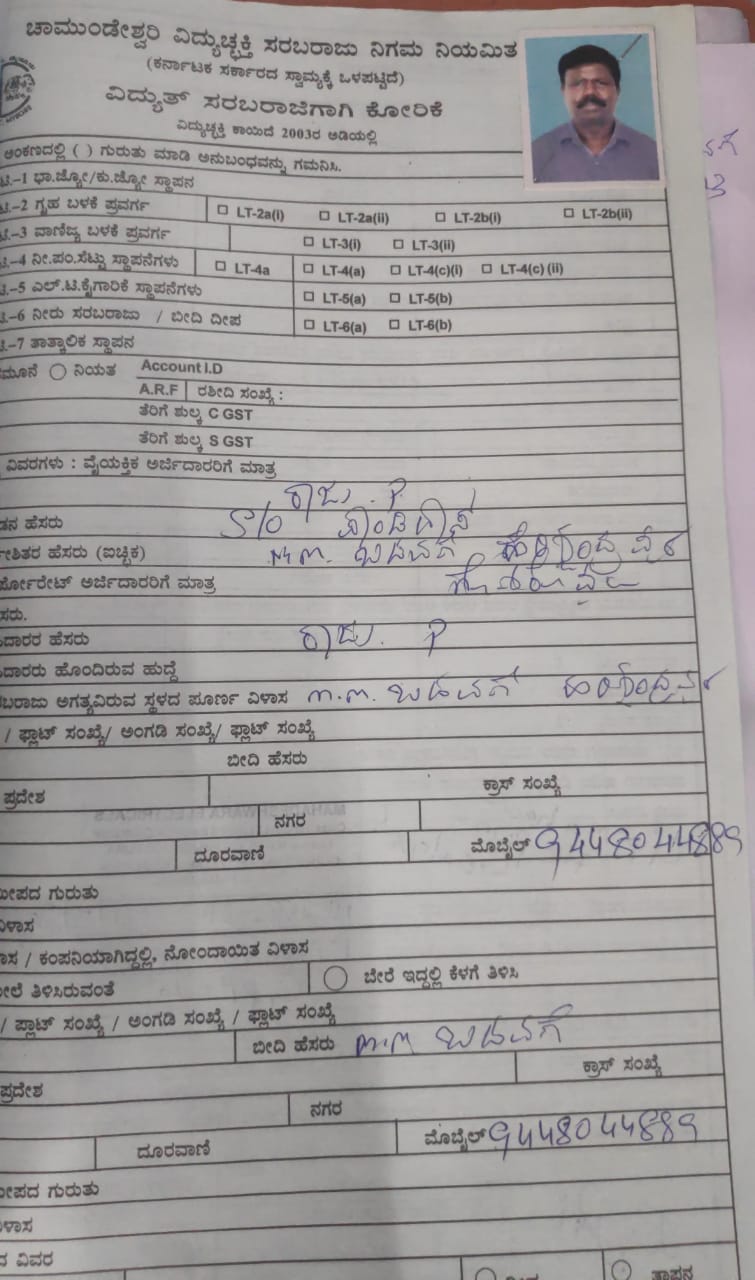 ಚಾಮುಂಡೇಶ್ವರಿ ವಿದ್ಯುಚ್ಛಕ್ತಿ ಸರಬರಾಜು ನಿಗಮ ನಿಯಮಿತ
(ಕರ್ನಾಟಕ ಸರ್ಕಾರದ ಸ್ವಾಮ್ಯಕ್ಕೆ ಒಳಪಟ್ಟಿದೆ)
ವಿದ್ಯುತ್ ಸರಬರಾಜಿಗಾಗಿ ಕೋರಿಕೆ
ವಿದ್ಯುಚ್ಛಕ್ತಿ ಕಾಯಿದೆ 2003ರ ಅಡಿಯಲ್ಲಿ
ಅಂಕಣದಲ್ಲಿ ( ) ಗುರುತು ಮಾಡಿ ಅನುಬಂಧವನ್ನು ಗಮನಿಸಿ.
ಟಿ.-1 ಭಾ.ಜ್ಯೋ/ಕು.ಜ್ಯೋ ಸ್ಥಾಪನ
ಟಿ.-2 ಗೃಹ ಬಳಕೆ ಪ್ರವರ್ಗ LT-2a(i) LT-2a(ii) LT-2b(i) LT-2b(ii)
ಟಿ.-3 ವಾಣಿಜ್ಯ ಬಳಕೆ ಪ್ರವರ್ಗ LT-3(i) LT-3(ii)
ಟಿ.-4 ನೀ.ಪಂ.ಸೆಟ್ಟು ಸ್ಥಾಪನೆಗಳು LT-4a LT-4(a) LT-4(c)(i) LT-4(c) (ii)
ಟಿ.-5 ಎಲ್.ಟಿ.ಕೈಗಾರಿಕೆ ಸ್ಥಾಪನೆಗಳು LT-5(a) LT-5(b)
ಟಿ.-6 ನೀರು ಸರಬರಾಜು / ಬೀದಿ ದೀಪ LT-6(a) LT-6(b)
ಟಿ.-7 ತಾತ್ಕಾಲಿಕ ಸ್ಥಾಪನ
ಮೂನೆ ನಿಯತ Account I.D
A.R.F ರಶೀದಿ ಸಂಖ್ಯೆ :
ತೆರಿಗೆ ಶುಲ್ಕ C GST
ತೆರಿಗೆ ಶುಲ್ಕ S GST
ವಿವರಗಳು : ವೈಯಕ್ತಿಕ ಅರ್ಜಿದಾರರಿಗೆ ಮಾತ್ರ
ರಾಜು. P
ಡನ ಹೆಸರು S/o
ೇಶಿತರ ಹೆಸರು (ಐಚ್ಛಿಕ) m.m. ಬಡಾವಣೆ
ರ್ಪೋರೇಟ್ ಅರ್ಜಿದಾರರಿಗೆ ಮಾತ್ರ
ಸರು.
ದಾರರ ಹೆಸರು ರಾಜು. P
ದಾರರು ಹೊಂದಿರುವ ಹುದ್ದೆ
ಬರಾಜು ಅಗತ್ಯವಿರುವ ಸ್ಥಳದ ಪೂರ್ಣ ವಿಳಾಸ m.m. ಬಡಾವಣೆ
/ ಫ್ಲಾಟ್ ಸಂಖ್ಯೆ/ ಅಂಗಡಿ ಸಂಖ್ಯೆ/ ಫ್ಲಾಟ್ ಸಂಖ್ಯೆ
ಬೀದಿ ಹೆಸರು
ಪ್ರದೇಶ ಕ್ರಾಸ್ ಸಂಖ್ಯೆ
ನಗರ
ದೂರವಾಣಿ ಮೊಬೈಲ್ 9448044889
ಮೀಪದ ಗುರುತು
ವಿಳಾಸ
ಾಸ / ಕಂಪನಿಯಾಗಿದ್ದಲ್ಲಿ, ನೋಂದಾಯಿತ ವಿಳಾಸ
ೇಲೆ ತಿಳಿಸಿರುವಂತೆ ಬೇರೆ ಇದ್ದಲ್ಲಿ ಕೆಳಗೆ ತಿಳಿಸಿ
/ ಪ್ಲಾಟ್ ಸಂಖ್ಯೆ / ಅಂಗಡಿ ಸಂಖ್ಯೆ / ಫ್ಲಾಟ್ ಸಂಖ್ಯೆ
ಬೀದಿ ಹೆಸರು m.m ಬಡಾವಣೆ
ಪ್ರದೇಶ ಕ್ರಾಸ್ ಸಂಖ್ಯೆ
ನಗರ
ದೂರವಾಣಿ ಮೊಬೈಲ್ 9448044889
ೀಪದ ಗುರುತು
ಳಾಸ
ದ ವಿವರ ತಾಪನ